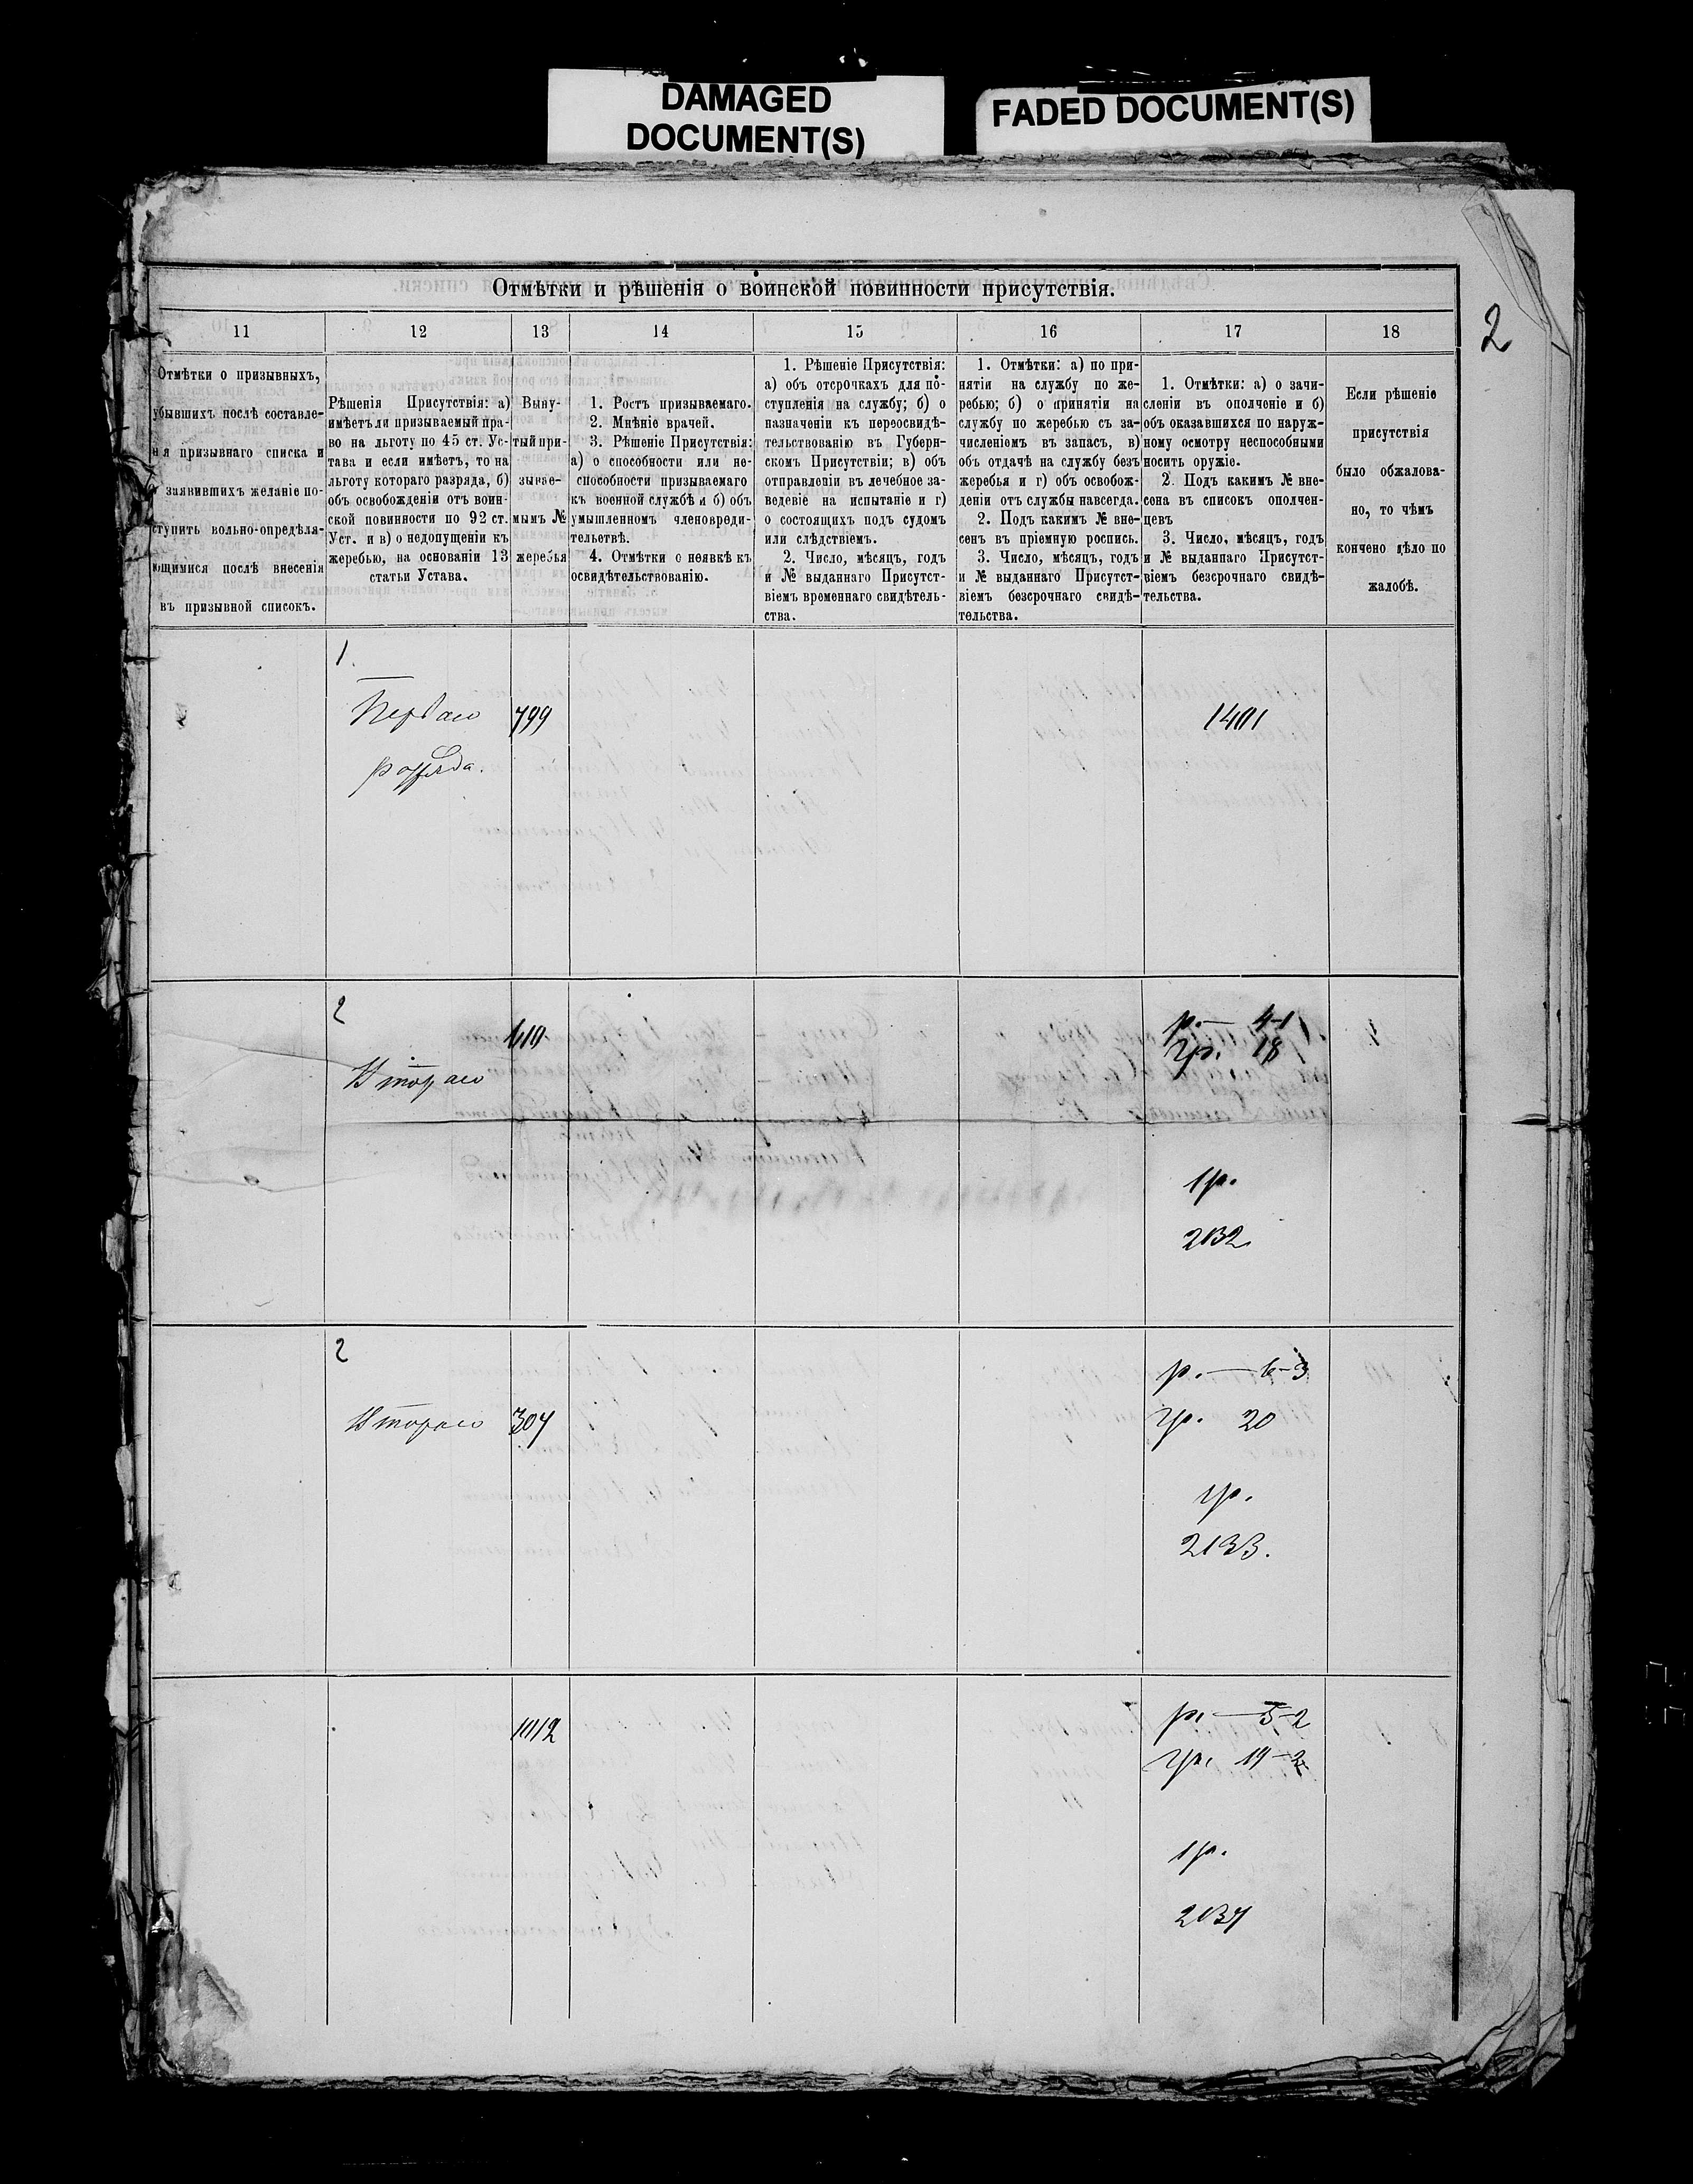 DAMAGED
DOCUMENT(S)
FADED DOCUMENT(S)
2
Отмѣтки и рѣшенія о воинской повинности присутствія.
11 12 13 14 15 16 17 18
Отмѣтки о призывныхъ,
убывшихъ послѣ составле-
нія призывнаго списка и
заявившихъ желаніе по-
ступить вольно-опредѣля-
ющимися послѣ внесенія
въ призывной списокъ.
Рѣшенія Присутствія: а)
имѣетъ ли призываемый пра-
во на льготу по 45 ст. Ус-
тава и если имѣетъ, то на
льготу котораго разряда, б)
объ освобожденіи отъ воин-
ской повинности по 92 ст.
Уст. и в) о недопущеніи къ
жеребью, на основаніи 13
статьи Устава.
Выну-
тый при-
зывае-
мымъ №
жеребья
1. Ростъ призываемаго.
2. Мнѣніе врачей.
3. Рѣшеніе Присутствія:
а) о способности или не-
способности призываемаго
къ военной службѣ и б) объ
умышленномъ членовреди-
тельствѣ.
4. Отмѣтки о неявкѣ къ
освидѣтельствованію.
1. Рѣшеніе Присутствія:
а) объ отсрочкахъ для по-
ступленія на службу; б) о
назначеніи къ переосвидѣ-
тельствованію въ Губерн-
скомъ Присутствіи; в) объ
отправленіи въ лечебное за-
веденіе на испытаніе и г)
о состоящихъ подъ судомъ
или слѣдствіемъ.
2. Число, мѣсяцъ, годъ
и № выданнаго Присутст-
віемъ временнаго свидѣтель-
ства.
1. Отмѣтки: а) по при-
нятіи на службу по же-
ребью; б) о принятіи на
службу по жеребью съ за-
численіемъ въ запасъ, в)
объ отдачѣ на службу безъ
жеребья и г) объ освобож-
деніи отъ службы навсегда.
2. Подъ какимъ № вне-
сенъ въ пріемную роспись.
3. Число, мѣсяцъ, годъ
и № выданнаго Присутст-
віемъ безсрочнаго свидѣ-
тельства.
1. Отмѣтки: а) о зачи-
сленіи въ ополченіе и б)
объ оказавшихся по наруж-
ному осмотру неспособными
носить оружіе.
2. Подъ какимъ № вне-
сена въ списокъ ополчен-
цевъ
3. Число, мѣсяцъ, годъ
и № выданнаго Присутст-
віемъ безсрочнаго свидѣ-
тельства.
Если рѣшеніе
присутствія
было обжалова-
но, то чѣмъ
кончено дѣло по
жалобѣ.
1
Перваго 799 1401
разряда.
2
619 р. — 4-1
гр. 18
Втораго
гр.
2132
2
р. — 6-3
Втораго 304 гр. 20
гр.
2133.
1012 р. — 5-2
гр. 19-2
гр.
2134